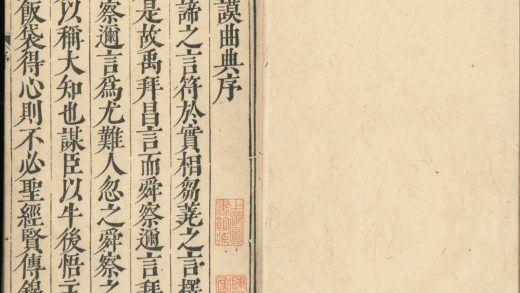 謨曲典序
諦之言符於實相芻蕘之言擇
是故禹拜昌言而舜察邇言拜
察邇言爲尤難人忽之舜察之
以稱大知也謀臣以牛後悟主
飯袋得心則不必聖經賢傳
序
上海圖
書館藏